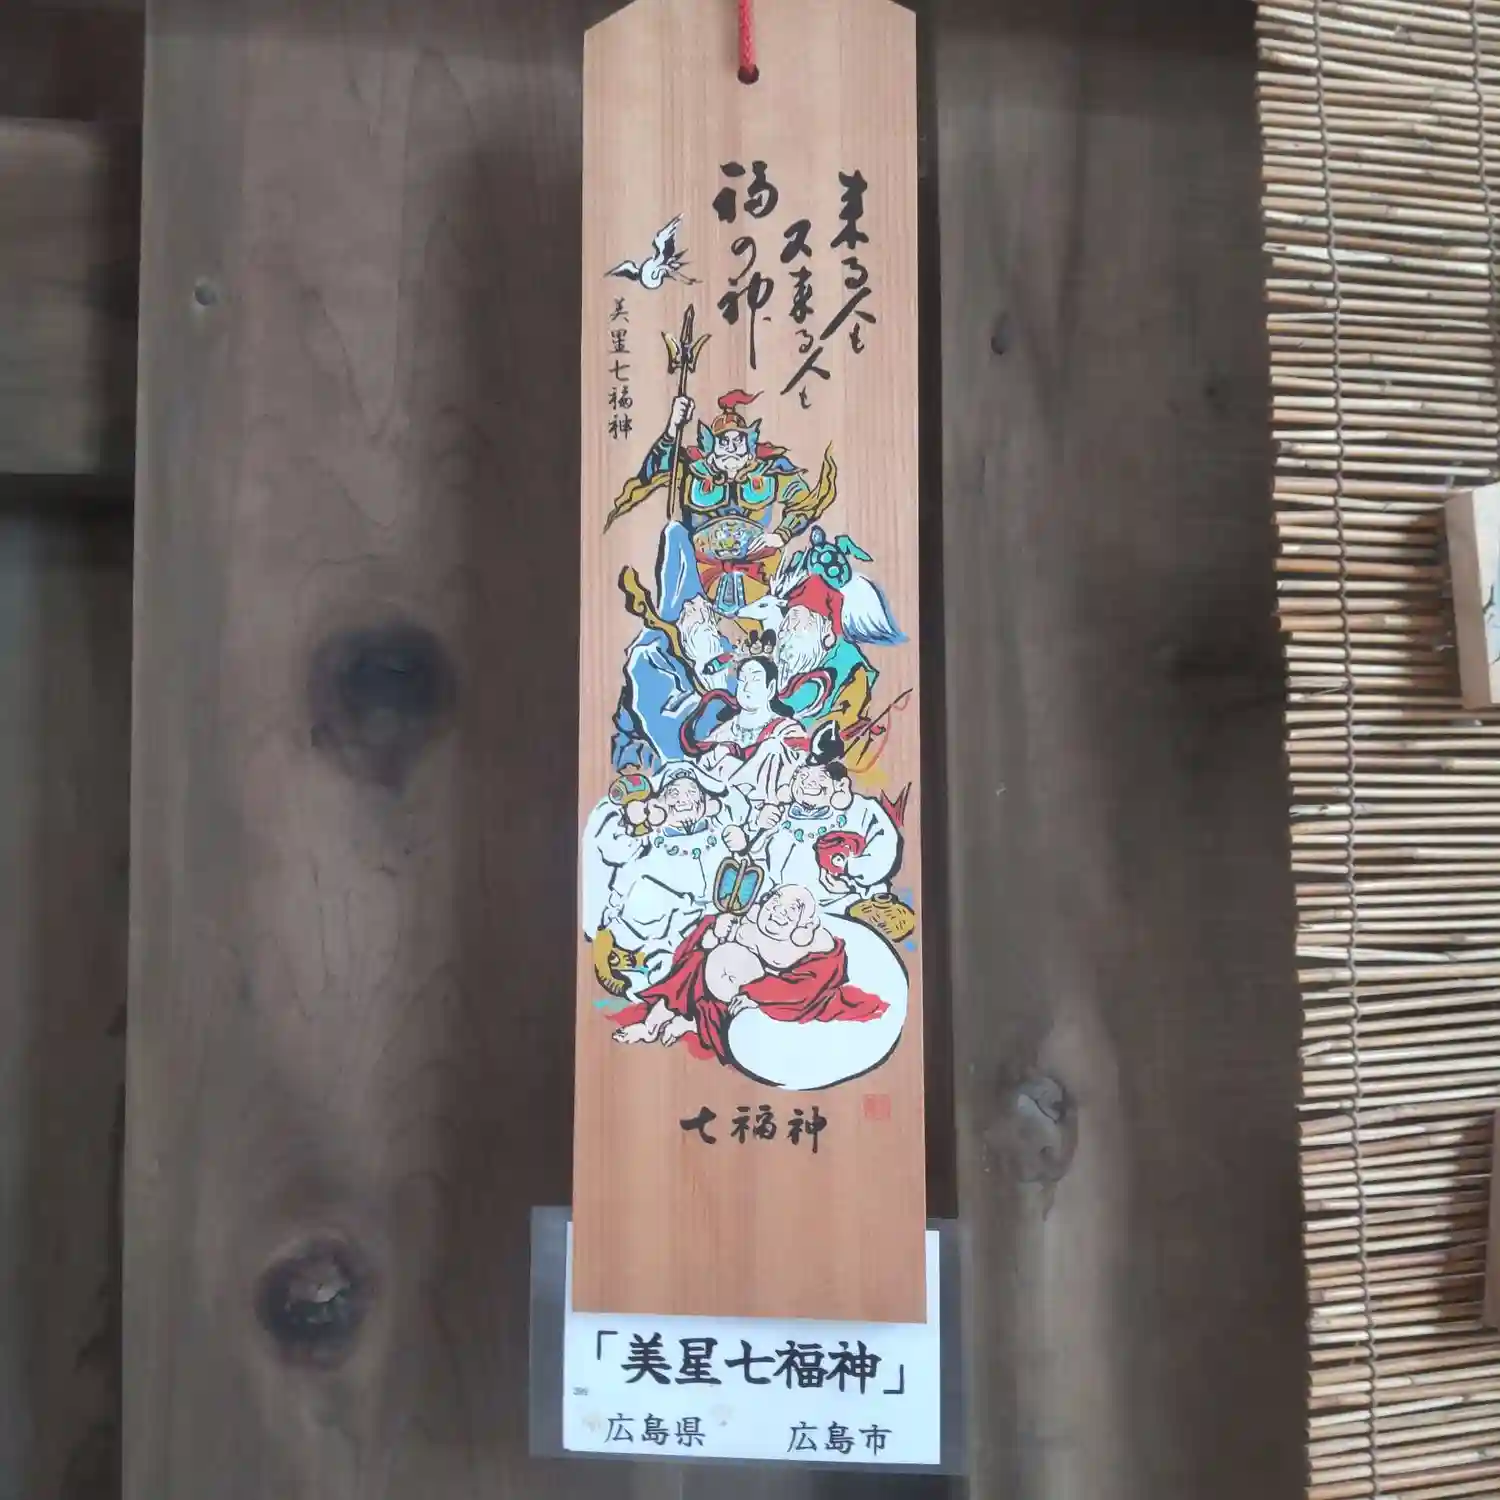 来る人も
又来る人も
福の神
美星七福神
七福神
「美星七福神」
広島県 広島市